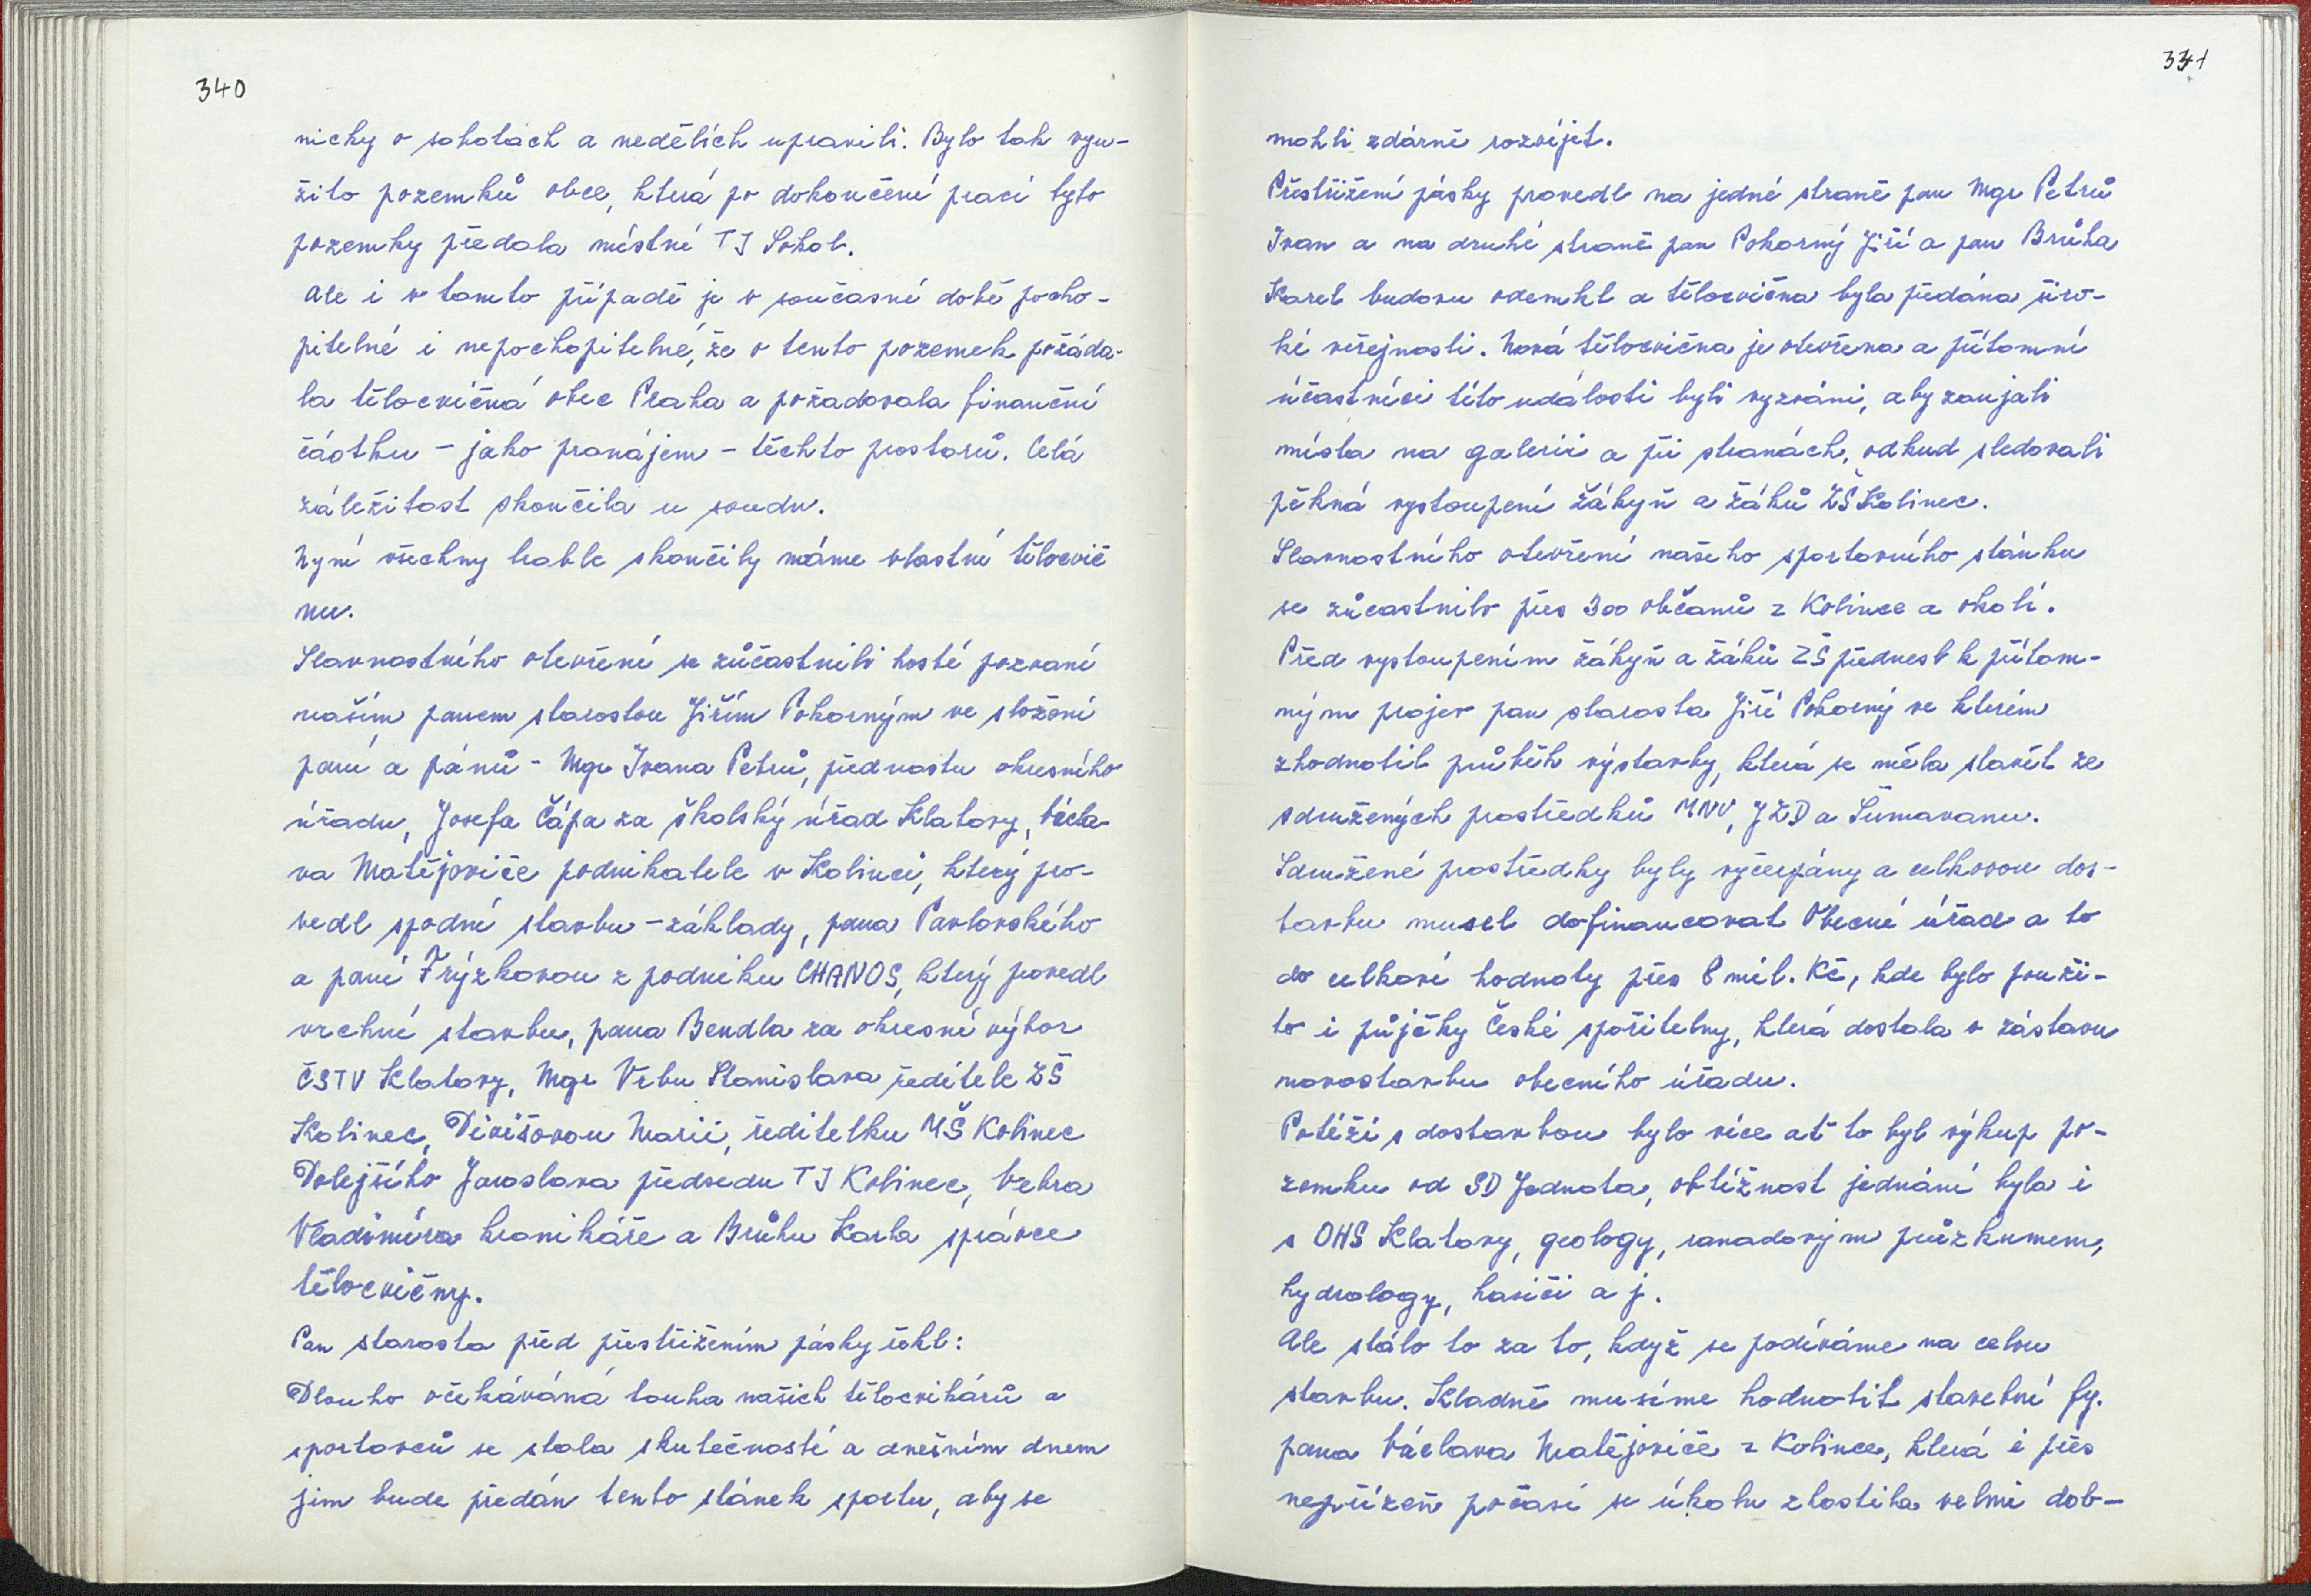 340
nicky v sobotách a nedělích upravili. Bylo tak vyu-
žito pozemků obce, která po dokončení prací tyto
pozemky předala místní TJ Sokol.
Ale i v tomto případě je v současné době pocho-
pitelné i nepochopitelné, že o tento pozemek požáda-
la tělocvičná obec Praha a požadovala finanční
částku - jako pronájem - těchto prostorů. Celá
záležitost skončila u soudu.
Nyní všechny trable skončily máme vlastní tělocvič
nu.
Slavnostního otevření se zúčastnili hosté pozvaní
naším panem starostou Jiřím Pokorným ve složení
paní a pánů - Mgr Ivana Petrů, přednostu okresního
úřadu, Josefa Čápa za školský úřad Klatovy, Václa-
va Matějoviče podnikatele v Kolinci, který pro-
vedl spodní stavbu - základy, pana Pavlovského
a paní Frýzkovou z podniku CHANOS, který provedl
vrchní stavbu, pana Bendla za okresní výbor
ČSTV Klatovy, Mgr Vrbu Stanislava ředitele ZŠ
Kolinec, Divišovou Marii, ředitelku MŠ Kolinec
Dolejšího Jaroslava předsedu TJ Kolinec, Vebra
Vladimíra kronikáře a Brůhu Karla správce
tělocvičny.
Pan starosta před přestřižením pásky řekl:
Dlouho očekáváná touha našich tělocvikářů a
sportovců se stala skutečností a dnešním dnem
jim bude předán tento stánek sportu, aby se
341
mohli zdárně rozvíjet.
Přestřižení pásky provedl na jedné straně pan Mgr Petrů
Ivan a na druhé straně pan Pokorný Jiří a pan Brůha
Karel budovu odemkl a tělocvična byla předána širo-
ké veřejnosti. Nová tělocvična je otevřena a přítomní
účastníci této události byli vyzváni, aby zaujali
místa na galerii a při stranách, odkud sledovali
pěkná vystoupení žákyň a žáků ZŠ Kolinec.
Slavnostního otevření našeho sportovního stánku
se zůcastnilo přes 300 občanů z Kolince a okolí.
Před vystoupením žákyň a žáků ZŠ přednesl k přítom-
ným projev pan starosta Jiří Pokorný ve kterém
zhodnotil průběh výstavby, která se měla stavět ze
sdružených prostředků MNV, JZD a Šumavanu.
Sdružené prostředky byly vyčerpány a celkovou dos-
tavbu musel dofinancovat Obecní úřad a to
do celkové hodnoty přes 8 mil. Kč, kde bylo použi-
to i půjčky České spořitelny, která dostala v zástavu
novostavbu obecního úřadu.
Potíží s dostavbou bylo více ať to byl výkup po-
zemku od SD Jednota, obtížnost jednání byla i
s OHS Klatovy, geology, ranadovým průzkumem,
hydrology, hasiči a j.
Ale stálo to za to, když se podíváme na celou
stavbu. Kladně musíme hodnotit stavební fy.
pana Václava Matějoviče z Kolince, která i přes
nepřízeň počasí se úkolu zhostila velmi dob-